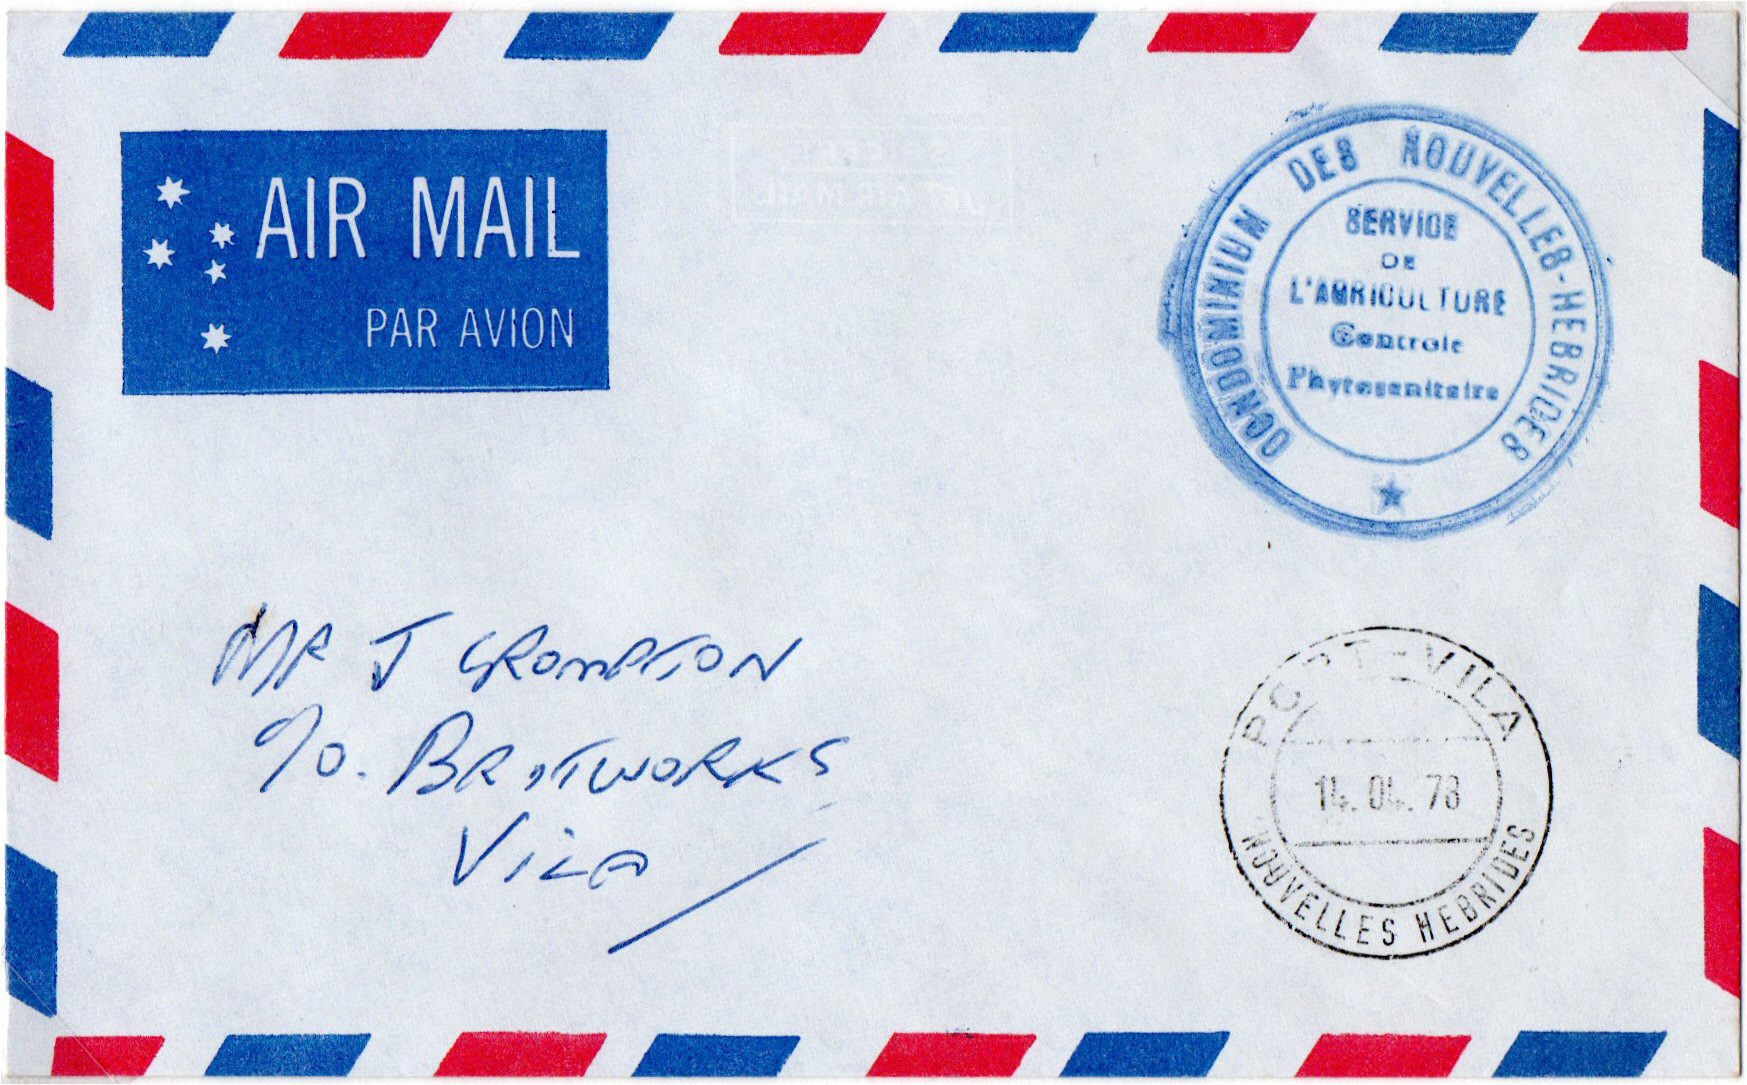 AIR MAIL
PAR AVION
CONDOMINIUM DES NOUVELLES-HEBRIDES
SERVICE
DE
L'AGRICULTURE
Controle
Phytosanitaire
MR J CROMPTON
c/o. BRITWORKS
VILA
PORT-VILA
14.04.78
NOUVELLES HEBRIDES